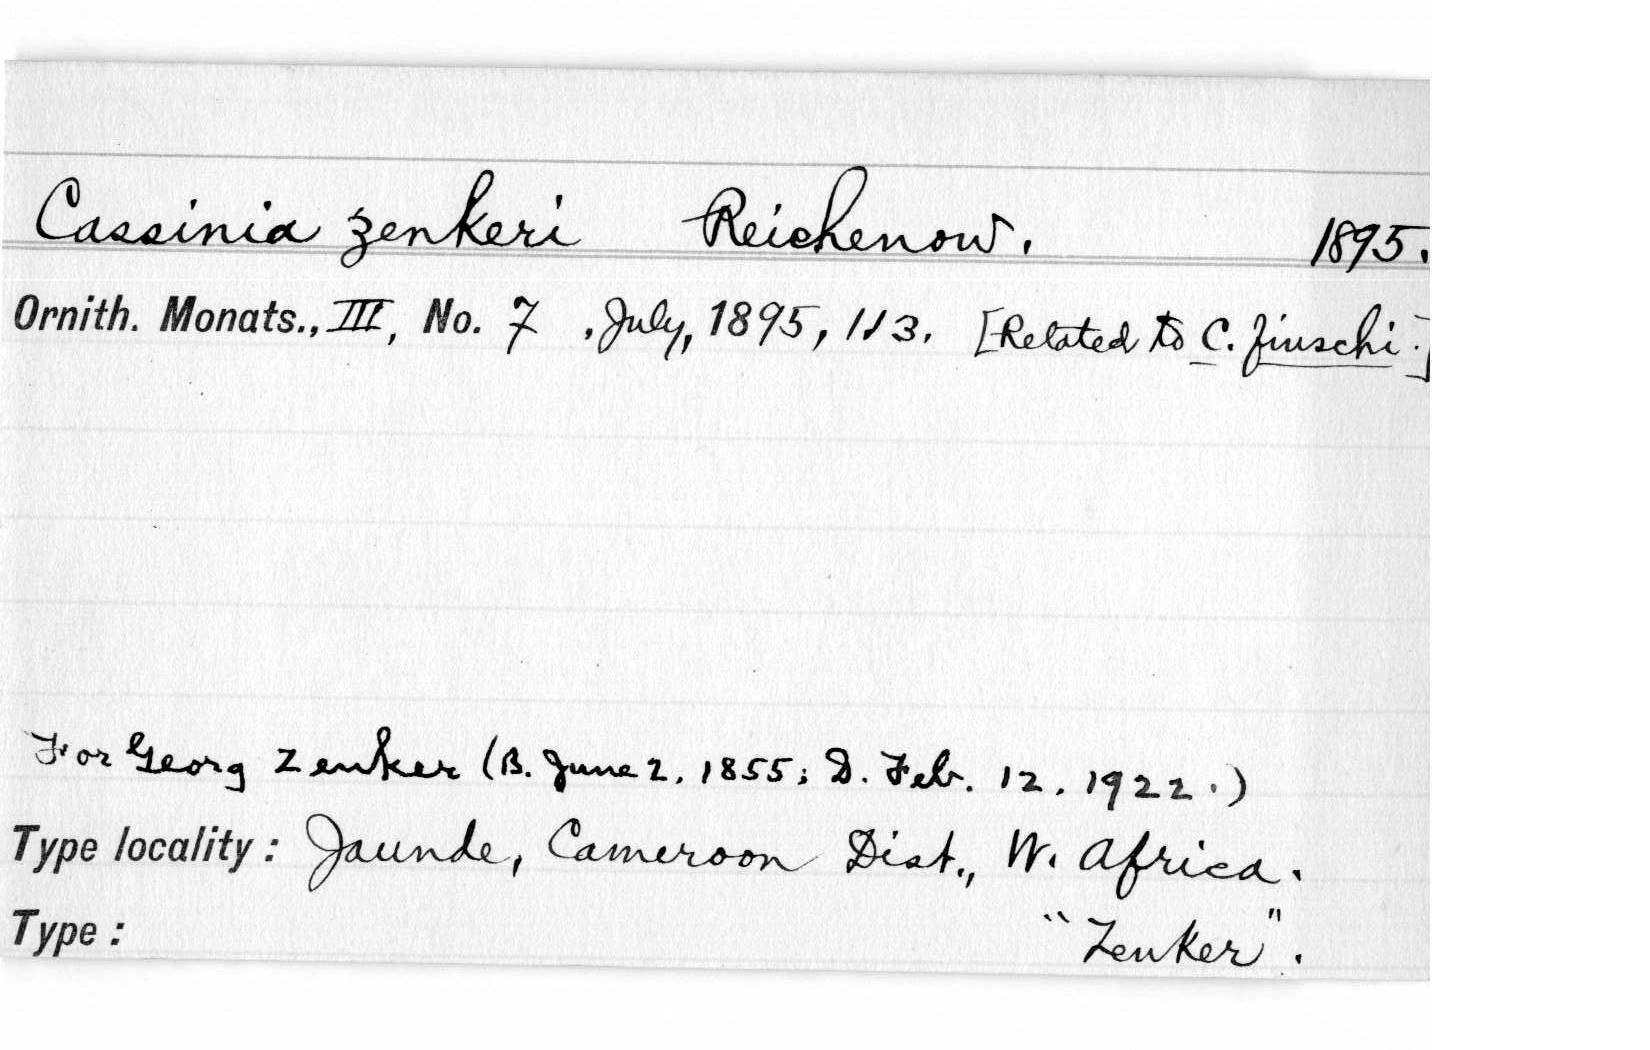 Cassinia zenkeri Reichenow. 1895.
Ornith. Monats., III, No. 7 , July, 1895, 113. [Related to C. finschi.]
For Georg Zenker (B. June 2, 1855; D. Feb. 12, 1922.)
Type locality: Jaunde, Cameroon Dist., W. Africa.
Type: "Zenker".